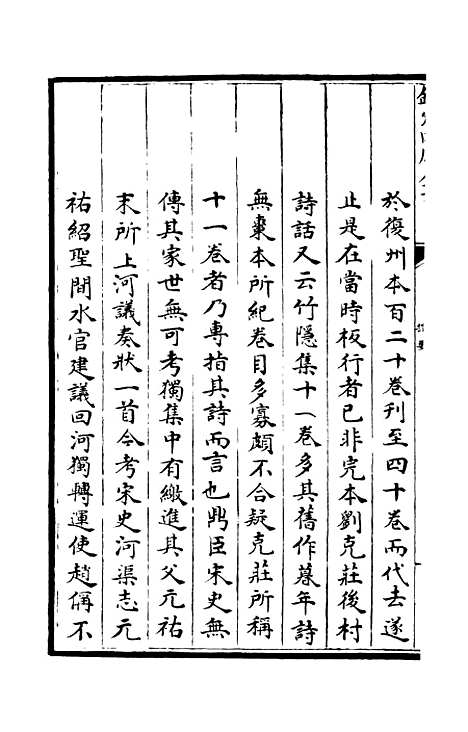 於復州本百二十卷刊至四十卷而代去遂
止是在當時板行者已非完本劉克莊後村
詩話又云竹隱集十一卷多其舊作暮年詩
無槀本所紀卷目多寡頗不合疑克莊所稱
十一卷者乃專指其詩而言也鼎臣宋史無
傳其家世無可考獨集中有繳進其父元祐
末所上河議奏狀一首今考宋史河渠志元
祐紹聖間水官建議回河獨轉運使趙偁不